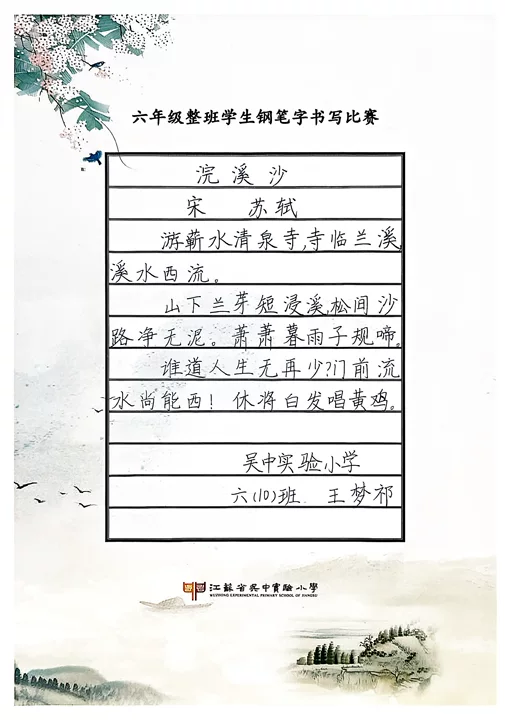 六年级整班学生钢笔字书写比赛
浣溪沙
宋 苏轼
游蕲水清泉寺,寺临兰溪,
溪水西流。
山下兰芽短浸溪,松间沙
路净无泥。萧萧暮雨子规啼。
谁道人生无再少?门前流
水尚能西!休将白发唱黄鸡。
吴中实验小学
六(10)班 王梦祁
江蘇省吳中實驗小學
WUZHONG EXPERIMENTAL PRIMARY SCHOOL OF JIANGSU